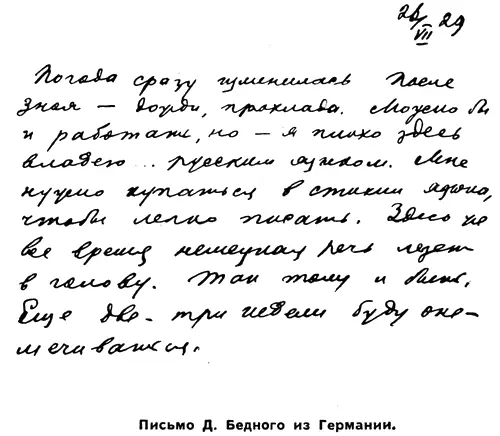 26/VII 29
Погода сразу изменилась после
зноя — дожди, прохлада. Можно бы
и работать, но — я плохо здесь
владею... русским языком. Мне
нужно купаться в стихии языка,
чтобы легко писать. Здесь же
все время немецкая речь лезет
в голову. Так тому и быть.
Еще две-три недели буду оне-
мечиваться.
Письмо Д. Бедного из Германии.